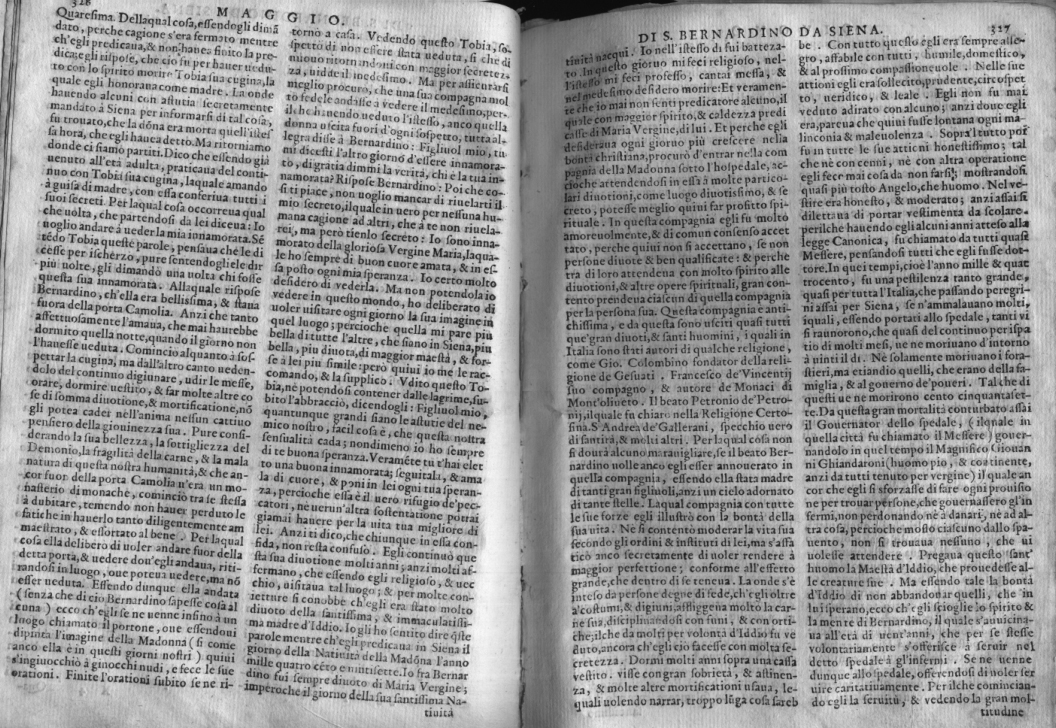 326
MAGGIO.
Quaresima. Dellaqual cosa, essendogli dimā
dato, perche cagione s'era fermato mentre
ch'egli predicaua, & non hauea finito la pre-
dica; egli rispose, che ciò fu per hauer uedu-
to con lo spirito morire Tobia sua cugina, la
quale egli honoraua come madre. La onde
hauendo alcuni con astutia secretamente
mandato à Siena per informarsi di tal cosa,
fu trouato, che la dōna era morta quell'istes
sa hora, che egli hauea detto. Ma ritorniamo
donde ci siamo partiti. Dico che essendo già
uenuto all'età adulta, praticaua del conti-
nuo con Tobia sua cugina, laquale amando
à guisa di madre, con essa conferiua tutti i
suoi secreti. Per laqual cosa occorreua qual
che uolta, che partendosi da lei diceua: Io
uoglio andare à ueder la mia innamorata. Sē
tēdo Tobia queste parole, pensaua che le di
cesse per ischerzo, pure sentendogliele dir
più uolte, gli dimandò una uolta chi fosse
questa sua innamorata. Allaquale rispose
Bernardino, ch'ella era bellissima, & staua
fuora della porta Camolia. Anzi che tanto
affettuosamente l'amaua, che mai haurebbe
dormito quella notte, quando il giorno non
l'hauesse ueduta. Cominciò alquanto à sos-
pettar la cugina, ma dall'altro canto ueden-
dolo del continuo digiunare, udir le messe,
orare, dormire uestito, & far molte altre co
se di somma diuotione, & mortificatione, nō
gli potea cader nell'anima nessun cattiuo
pensiero della giouinezza sua. Pure consi-
derando la sua bellezza, la sottigliezza del
Demonio, la fragilità della carne, & la mala
natura di questa nostra humanità, & che an-
cor fuor della porta Camolia u'era un mo-
nasterio di monache, cominciò tra se stessa
à dubitare, temendo non hauer perduto le
fatiche in hauerlo tanto diligentemente am
maestrato, & essortato al bene. Per laqual
cosa ella delibero di uoler andare fuor della
detta porta, & uedere dou'egli andaua, riti-
randosi in luogo, oue potea uedere, ma nō
esser ueduta. Essendo dunque ella andata
(senza che di cio Bernardino sapesse cosa al
cuna) ecco ch'egli se ne uenne insino à un
luogo chiamato il portone, oue essendoui
dipinta l'imagine della Madonna (si come
anco ella è in questi giorni nostri) quiui
s'inginocchiò à ginocchi nudi, e fece le sue
orationi. Finite l'orationi subito se ne ri-
torno à casa. Vedendo questo Tobia, so-
spetto di non essere stata ueduta, si che di
nuouo ritornandoui con maggior secretez-
za, uidde il medesimo. Ma per assicurarsi
meglio procurò, che una sua compagna mol
to fedele andasse à vedere il medesimo, per-
ilche hauendo ueduto l'istesso, anco quella
donna uscita fuori d'ogni sospetto, tutta al-
legra disse à Bernardino: Figliuol mio, tu
mi dicesti l'altro giorno d'essere innamora-
to, di gratia dimmi la verità, chi è la tua in-
namorata? Rispose Bernardino: Poi che co-
si ti piace, non uoglio mancar di riuelarti il
mio secreto, ilquale in uero per nessuna hu-
mana cagione ad altri, che à te non riuela-
rei, ma però tienlo secreto: Io sono inna-
morato della gloriosa Vergine Maria, laqua-
le ho sempre di buon cuore amata, & in es-
sa posto ogni mia speranza. Io certo molto
desidero di vederla. Ma non potendola io
vedere in questo mondo, ho deliberato di
uoler uisitare ogni giorno la sua imagine in
quel luogo; percioche quella mi pare più
bella di tutte l'altre, che siano in Siena, più
bella, piu diuota, di maggior maestà, & for-
se à lei piu simile: però quiui io me le rac-
comando, & la supplico. Vdito questo To-
bia, nè potendosi contener dalle lagrime, su-
bito l'abbracciò, dicendogli: Figliuol mio,
quantunque grandi siano le astutie del ne-
mico nostro, facil cosa è, che questa nostra
sensualità cada; nondimeno io ho sempre
di te buona speranza. Veramēte tu t'hai elet
to una buona innamorata; seguitala, & ama
la di cuore, & poni in lei ogni tua speran-
za, percioche essa è il uero refugio de'pec-
catori, ne uerun'altra sostentatione potrai
giamai hauere per la uita tua migliore di
lei. Anzi ti dico, che chiunque in essa con-
fida, non resta confuso. Egli continuò que
sta sua diuotione molti anni; anzi molti af-
fermano, che essendo egli religioso, & uec
chio, uisitaua tal luogo; & per molte con-
ietture si conobbe ch'egli era stato molto
diuoto della santissima, & immaculatissi-
ma madre d'Iddio. Io gli ho sentito dire q̄ste
parole mentre ch'egli predicaua in Siena il
giorno della Natiuità della Madōna l'anno
mille quatro cēto e uintisette. Io fra Bernar
dino fui sempre diuoto di Maria Vergine;
imperoche il giorno della sua santissima Na-
tiuità
DI S. BERNARDINO DA SIENA.
327
tiuità nacqui. Io nell'istesso dì fui battezza-
to. In questo giorno mi feci religioso, nel-
l'istesso mi feci professo, cantai messa, &
nel medesimo desidero morire: Et veramen-
te che io mai non senti predicatore alcuno, il
quale con maggior spirito, & caldezza predi
casse di Maria Vergine, di lui. Et perche egli
desideraua ogni giorno più crescere nella
bontà christiana, procurò d'entrar nella com
pagnia della Madonna sotto l'hospedale, ac-
cioche attendendosi in essa à molte partico-
lari diuotioni, come luogo diuotissimo, & se
creto, potesse meglio quiui far profitto spi-
rituale. In questa compagnia egli fu molto
amoreuolmente, & di comun consenso accet
tato, perche quiui non si accettano, se non
persone diuote & ben qualificate: & perche
tra di loro attendeua con molto spirito alle
diuotioni, & altre opere spirituali, gran con-
tento prendeua ciascun di quella compagnia
per la persona sua. Questa compagnia è anti-
chissima, e da questa sono usciti quasi tutti
que'gran diuoti, & santi huomini, i quali in
Italia sono stati autori di qualche religione,
come Gio. Colombino fonditor della reli-
gione de Gesuati. Francesco de'Vincentij
suo compagno, & autore de Monaci di
Mont'oliueto. Il beato Petronio de'Petro-
nij, ilquale fu chiaro nella Religione Certo-
sina. S. Andrea de'Gallerani, specchio uero
di santità, & molti altri. Per laqual cosa non
si dourà alcuno marauigliare, se il beato Ber-
nardino uolle anco egli esser annouerato in
quella compagnia, essendo ella stata madre
di tanti gran figliuoli, anzi un cielo adornato
di tante stelle. Laqual compagnia con tutte
le sue forze egli illustrò con la bontà della
sua vita. Nè si contentò moderar la vita sua
secondo gli ordini & instituti di lei, ma s'affa
ticò anco secretamente di uoler rendere à
maggior perfettione; conforme all'effetto
grande, che dentro di se teneua. La onde s'è
inteso da persone degne di fede, ch'egli oltre
a'costumi, & digiuni, affliggeua molto la car-
ne sua, disciplinandosi con funi, & con orti-
che; ilche da molti per volontà d'Iddio fu ve
duto, ancora ch'egli ciò facesse con molta se-
cretezza. Dormì molti anni sopra una cassa
vestito. visse con gran sobrietà, & astinen-
za, & molte altre mortificationi usaua, le-
quali uolendo narrar, troppo lūga cosa sareb
be. Con tutto questo egli era sempre alle-
gro, affabile con tutti, humile, domestico,
& al prossimo compassioneuole. Nelle sue
attioni egli era sollecito, prudente, circospet
to, ueridico, & leale. Egli non fu mai
veduto adirato con alcuno; anzi doue egli
era, pareua che quiui fusse lontana ogni ma-
linconia & maleuolenza. Sopra'l tutto poi
fu in tutte le sue attioni honestissimo; tal
che nè con cenni, nè con altra operatione
egli fece mai cosa da non farsi; mostrandosi
quasi più tosto Angelo, che huomo. Nel ve-
stire era honesto, & moderato; anzi assai si
dilettaua di portar vestimenta da scolare,
perilche hauendo egli alcuni anni atteso alla
legge Canonica, fu chiamato da tutti quasi
Messere, pensandosi tutti che egli fusse dot-
tore. In que tempi, cioè l'anno mille & quat
trocento, fu una pestilenza tanto grande,
quasi per tutta l'Italia, che passando peregri-
ni assai per Siena, se n'ammalauano molti,
iquali, essendo portati allo spedale, tanti vi
si rannorono, che quasi del continuo per ispa
tio di molti mesi, ue ne moriuano d'intorno
à uinti il dì. Nè solamente moriuano i fora-
stieri, ma etiandio quelli, che erano della fa-
miglia, & al gouerno de'poueri. Talche di
questi ue ne morirono cento cinquantaset-
te. Da questa gran mortalità conturbato assai
il Gouernator dello spedale, (ilquale in
quella città fu chiamato il Messere) gouer-
nandolo in quel tempo il Magnifico Giouan
ni Ghiandaroni (huomo pio, & continente,
anzi da tutti tenuto per vergine) il quale an
cor che egli si sforzasse di fare ogni prouisio
ne per trouar persone, che gouernassero gl'in
fermi, non perdonando nè a danari, nè ad al-
tra cosa, percioche mosso ciascuno dallo spa-
uento, non si trouaua nessuno, che ui
uolesse attendere. Pregaua questo sant'
huomo la Maestà d'Iddio, che prouedesse al-
le creature sue. Ma essendo tale la bontà
d'Iddio di non abbandonar quelli, che in
lui sperano, ecco ch'egli scioglie lo spirito &
la mente di Bernardino, il quale s'auuicina-
ua all'età di uent'anni, che per se stesse
volontariamente s'offerisce à seruir nel
detto spedale à gl'infermi. Se ne uenne
dunque allo spedale, offerendosi di uoler ser
uire caritatiuamente. Per ilche cominciam-
do egli la seruitù, & vedendo la gran mol-
titudine